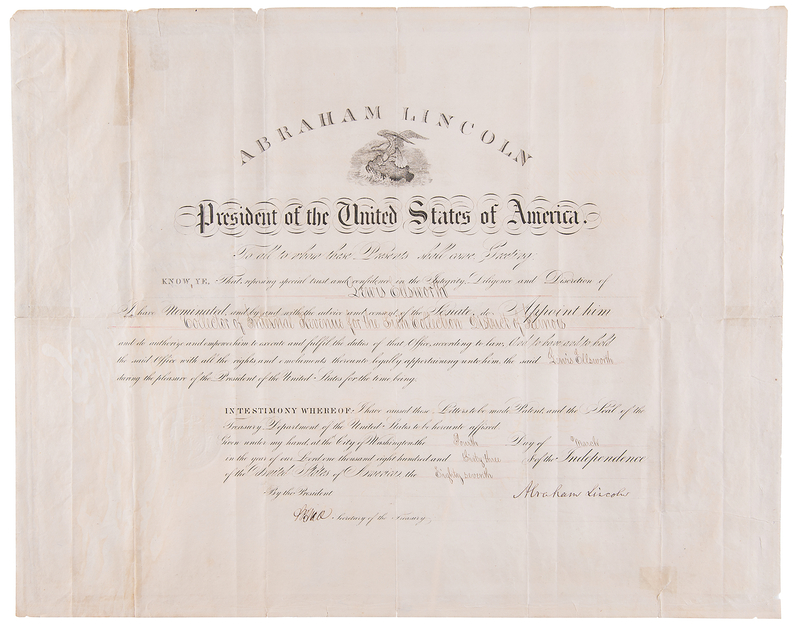 ABRAHAM LINCOLN
President of the United States of America.
To all to whom these Presents shall come Greeting:
KNOW YE, That reposing special trust and confidence in the Integrity, Diligence and Discretion of
Lewis Ellsworth
I have Nominated, and by and with the advice and consent of the Senate, do Appoint him
Collector of Internal Revenue for the Collection District of Illinois
and do authorize and empower him to execute and fulfil the duties of that Office, according to law, And to have and to hold
the said Office with all the rights and emoluments thereunto legally appertaining unto him, the said Lewis Ellsworth
during the pleasure of the President of the United States for the time being.
IN TESTIMONY WHEREOF, I have caused these Letters to be made Patent, and the Seal of the
Treasury Department of the United States to be hereunto affixed
Given under my hand, at the City of Washington, the Fourth Day of March
in the year of our Lord one thousand eight hundred and Sixty three & of the Independence
of the United States of America, the Eighty seventh
By the President
Abraham Lincoln
Secretary of the Treasury.